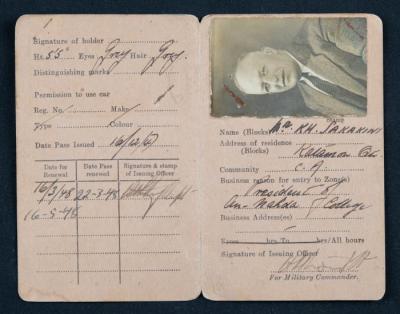 Signature of holder
Ht. 5'5" Eyes Grey Hair Grey.
Distinguishing marks
Permission to use car
Reg. No. Make
Type Colour
Date Pass Issued 16/12/47
Date for Renewal Date Pass renewed Signature & stamp of Issuing Officer
16/3/48 22-3-48
16-5-48
Name (Blocks) Mr. KH. SAKAKINI
Address of residence (Blocks) Katamon
Community C. A
Business reason for entry to Zone(s)
President of
An-Nahda College
Business Address(es)
From hrs/To hrs/All hours
Signature of Issuing Officer
For Military Commander.